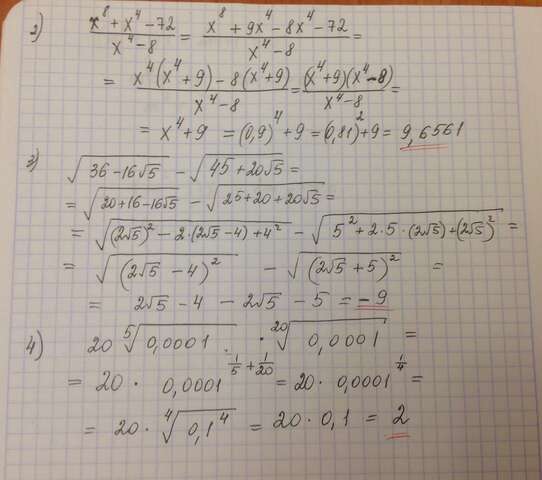 2) (x⁸ + x⁴ - 72)/(x⁴ - 8) = (x⁸ + 9x⁴ - 8x⁴ - 72)/(x⁴ - 8) =
= (x⁴(x⁴ + 9) - 8(x⁴ + 9))/(x⁴ - 8) = ((x⁴ + 9)(x⁴ - 8))/(x⁴ - 8) =
= x⁴ + 9 = (0,9)⁴ + 9 = (0,81)² + 9 = 9,6561
3) √(36 - 16√5) - √(45 + 20√5) =
= √(20 + 16 - 16√5) - √(25 + 20 + 20√5) =
= √((2√5)² - 2·(2√5 - 4) + 4²) - √(5² + 2·5·(2√5) + (2√5)²) =
= √((2√5 - 4)²) - √((2√5 + 5)²) =
= 2√5 - 4 - 2√5 - 5 = -9
4) 20 ⁵√(0,0001) · ²⁰√(0,0001) =
= 20 · 0,0001^(1/5 + 1/20) = 20 · 0,0001^(1/4) =
= 20 · ⁴√(0,1⁴) = 20 · 0,1 = 2